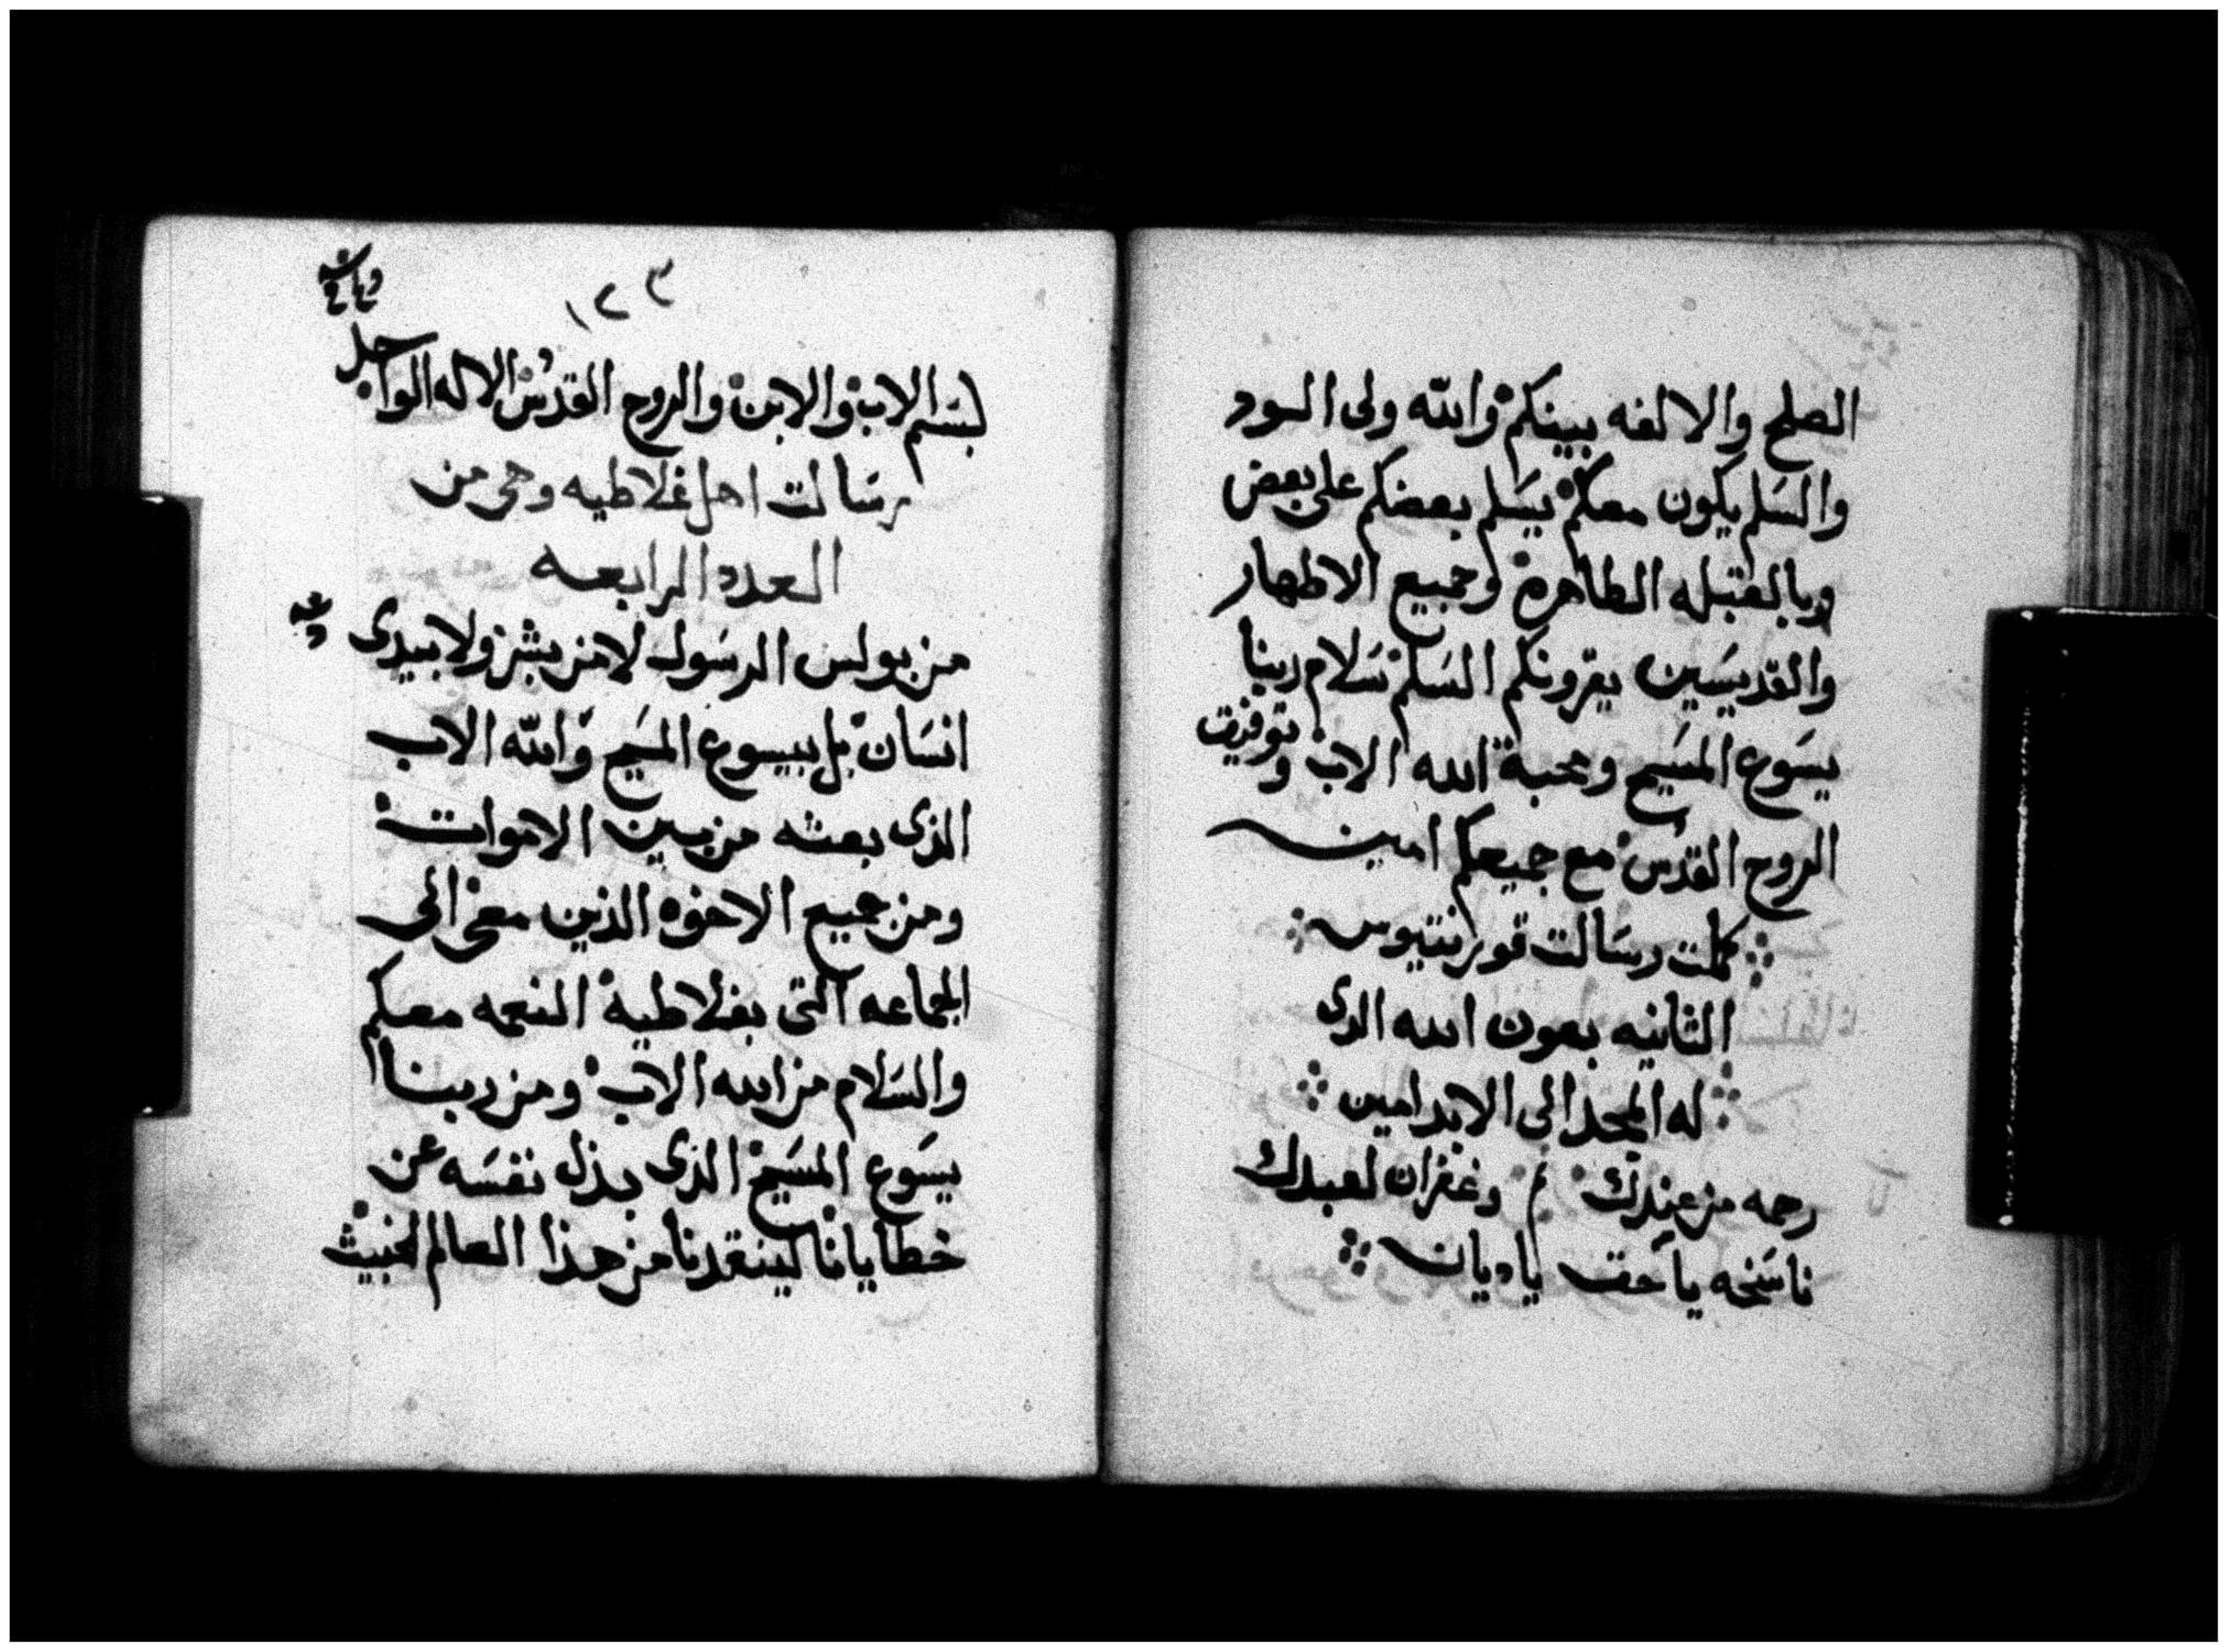 الصلح والالفه بينكم والله ولى الود
والسلم يكون معكم يسلم بعضكم على بعض
وبالقبله الطاهرة وجميع الاطهار
والقديسين يقرونكم السلم سلام ربنا
يسوع المسيح ومحبة الله الاب وتوفيق
الروح القدس مع جميعكم امين
كملت رسالت قورنتيوس
الثانيه بعون الله الدى
له المجد الى الابد امين
رحمه من عندك وغفران لعبدك
ناسخه يا حق يا ديان
١٢٣
بسم الاب والابن والروح القدس الاله الواحد
رسالت اهل غلاطيه وهى من
العدد الرابعه
من بولس الرسول لا من بشر ولا بيدى
انسان بل بيسوع المسيح والله الاب
الذى بعثه من بين الاموات
ومن جميع الاخوه الذين معى الى
الجماعه التى بغلاطية النعمه معكم
والسلام من الله الاب ومن ربنا
يسوع المسيح الذى بذل نفسه عن
خطايانا لينقدنا من هذا العالم الخبيث